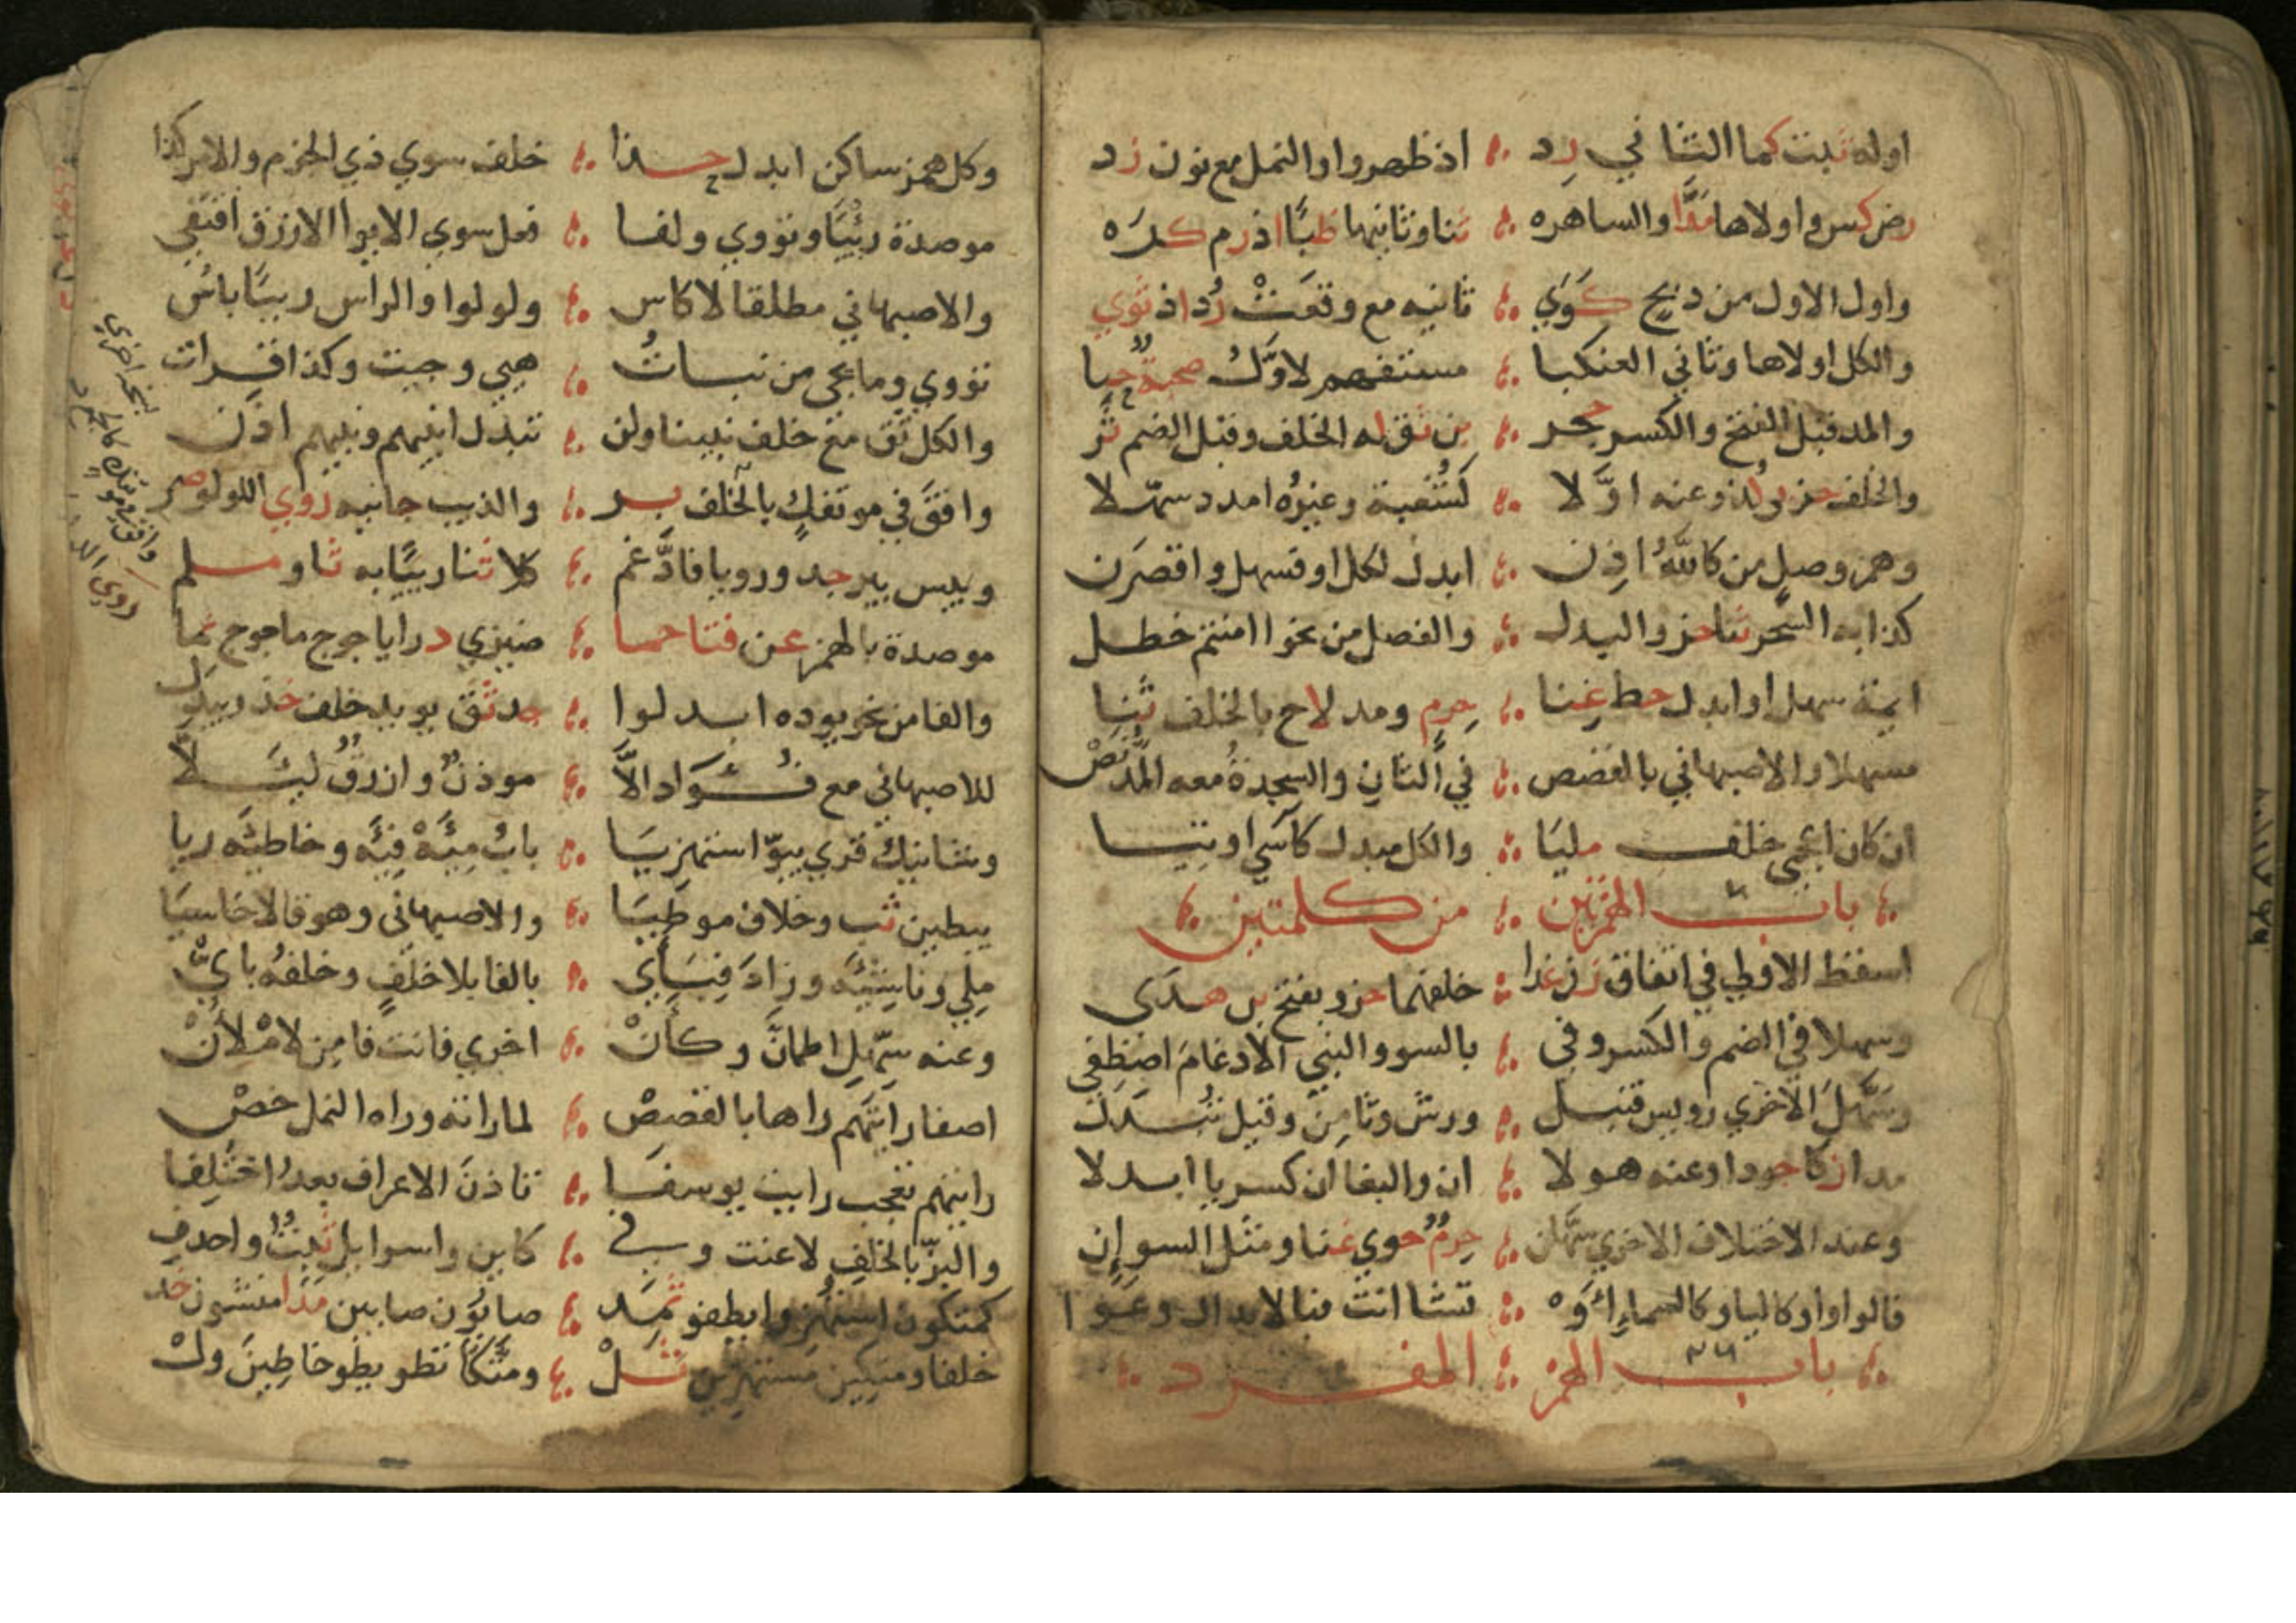 اوله ثبت كما الثاني رد ؞ اذ ظهروا والنمل مع نون زد
رض كس واولاها مدا والساهره ؞ ثنا وثانيها ظبا اذ رم كره
واول الاول من ذبح كوي ؞ ثانيه مع وقعت رد اذ ثوي
والكل اولاها وثاني العنكبا ؞ مستفهم الاول صحبة حبا
والمد قبل الفتح والكسر حجر ؞ بن ثق له الخلف وقبل الضم ثر
والخلف حز بي لذ وعنه اولا ؞ كشعبة وغيره امدد سهلا
وهمز وصل من كالله اذن ؞ ابدل لكل او فسهل واقصرن
كذا به السحر ثنا حز والبدل ؞ والفصل من نحو اامنتم خطل
ايمة سهل او ابدل حط غنا ؞ حرم ومد لاح بالخلف ثنا
مسهلا والاصبهاني بالقصص ؞ في الثان والسجدة معه المد نص
ان كان اعجمي خلف مليا ؞ والكل مبدل كاسي اوتيا
باب الهمزتين ؞ من كلمتين
اسقط الاولي في اتفاق زن غدا ؞ خلفهما حز وبفتح بن هدى
وسهلا في الضم والكسر وفي ؞ بالسوء والنبي الادغام اصطفي
وسهل الاخري رويس قنبل ؞ ورش وثامن وقيل تبدل
مدا زكا جودا وعنه هولا ؞ ان والبغا ان كسر يا ابدلا
وعند الاختلاف الاخري سهلن ؞ حرم حوي غنا ومثل السو ان
فالواو او كاليا وكالسماء او ؞ تشا انت فبالابدال وعوا
باب الهمز ؞ المفرد
وكل همز ساكن ابدل حذا ؞ خلف سوي ذي الجزم والامر كذا
موصدة رئيا وتؤوي ولفا ؞ فعل سوي الايوا الازرق اقتفي
والاصبهاني مطلقا لا كاس ؞ ولولوا والراس رييا باس
تؤوي وما يجي من نبات ؞ هيي وجيت وكذا قرات
والكل ثق مع خلف نبينا ولن ؞ تبدل انبيهم ونبيهم اذن
وافق في موتفك بالخلف بر ؞ والذيب جانيه روي اللولو صر
وبيس بير جد ورويا فادغم ؞ كلا ثنا رييا به ثاو مسلم
موصدة بالهمز عن فتا حما ؞ ضيزي درا ياجوج ماجوج نما
والفا من نحو يوده ابدلوا ؞ جد ثق يويد خلف خذ ويبدل
للاصبهاني مع فؤاد الا ؞ موذن وازرق ليلا
وشانيك قري يبوا استهزيا ؞ باب ميه فيه وخاطيه ريا
يبطين ثب وخلاف موطيا ؞ والاصبهاني وهو قالا خاسيا
ملي وناشيه وزاد فباي ؞ بالفا بلا خلف وخلفه باي
وعنه سهل اطمان وكان ؞ اخري فانت فامن لاملان
اصفا رايتهم راها بالقصص ؞ لما راته وراه النمل خص
رايتهم تعجب رايت يوسفا ؞ تاذن الاعراف بعد اختلفا
والبز بالخلف لاعنت وفي ؞ كاين واسرايل ثبت واحذف
كمتكون استهزوا يطفو ثمد ؞ صابون صابين مدا منشون خد
خلفا ومتكين مستهزين ثل ؞ ومتكا تطو يطو خاطين ول